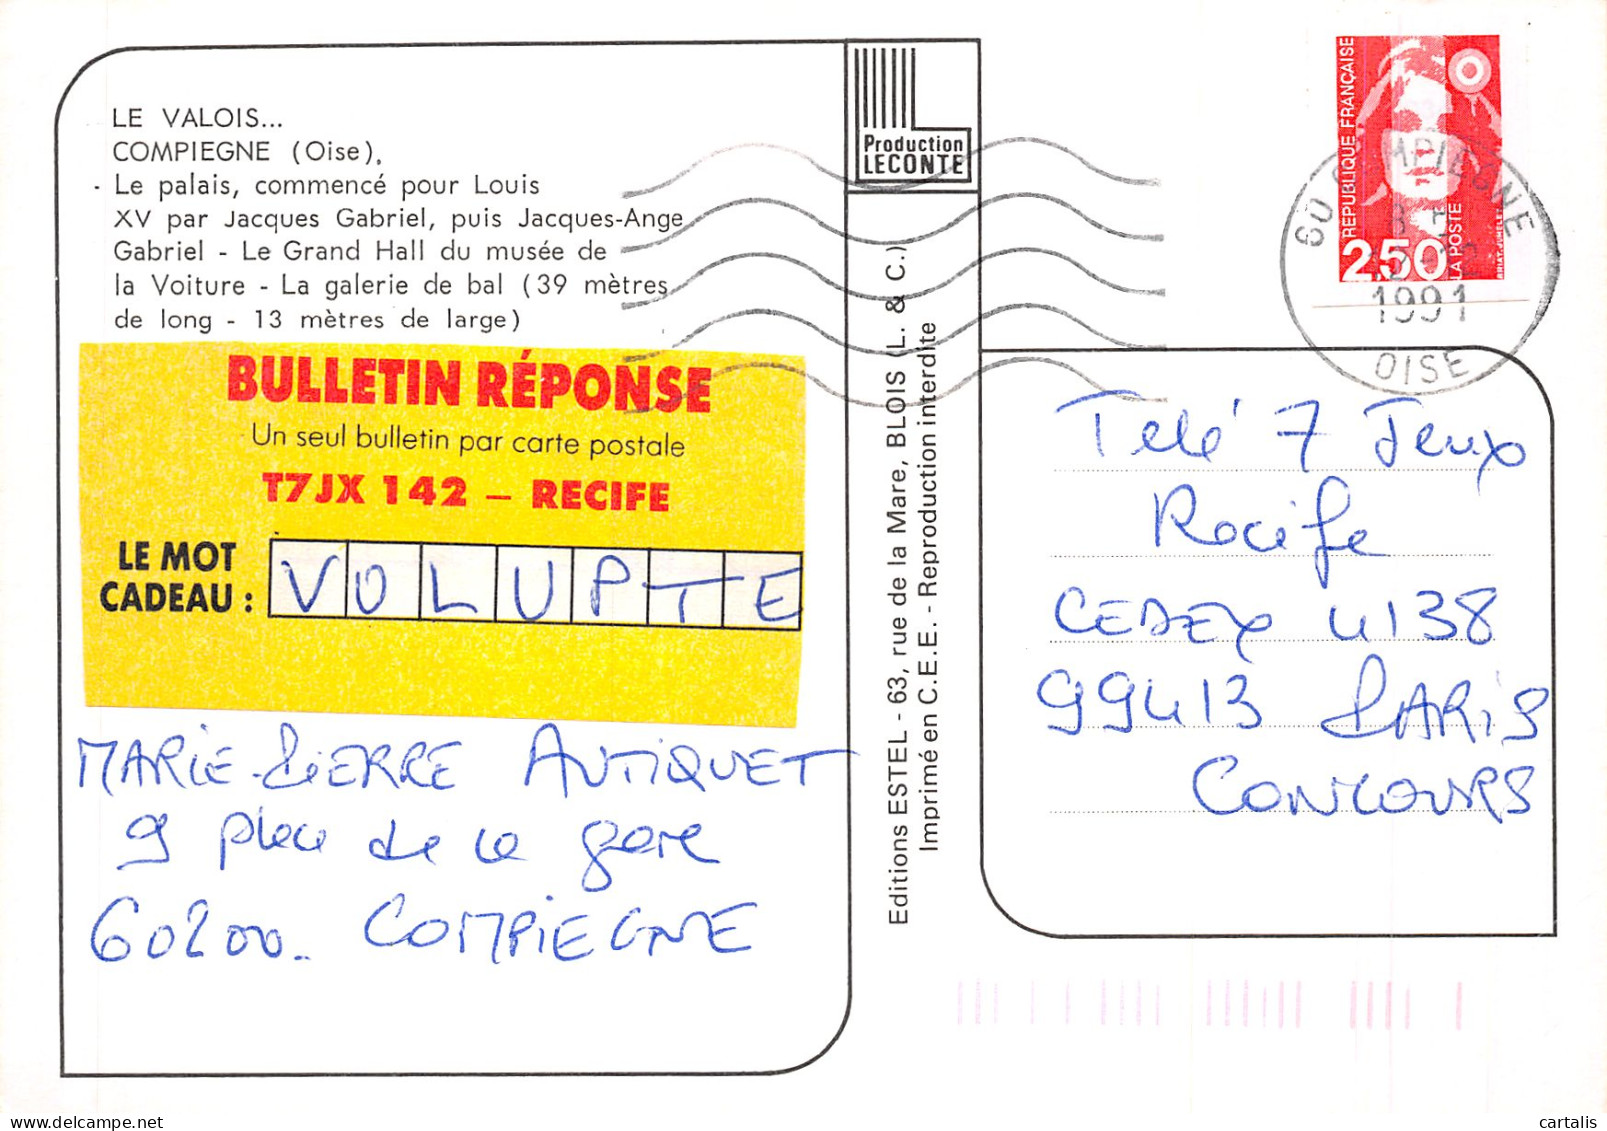 LE VALOIS...
COMPIEGNE (Oise),
- Le palais, commencé pour Louis
XV par Jacques Gabriel, puis Jacques-Ange
Gabriel - Le Grand Hall du musée de
la Voiture - La galerie de bal (39 mètres
de long - 13 mètres de large)
BULLETIN RÉPONSE
Un seul bulletin par carte postale
T7JX 142 – RECIFE
LE MOT
CADEAU : VOLUPTE
MARIE-PIERRE AUTIQUET
9 place de la gare
60200. COMPIEGNE
Production
LECONTE
Editions ESTEL - 63, rue de la Mare, BLOIS (L. & C.)
Imprimé en C.E.E. - Reproduction interdite
REPUBLIQUE FRANÇAISE
2,50
LA POSTE
BRIAT JUMELET
60 COMPIEGNE
1991
OISE
Télé 7 Jeux
Recife
CEDEX 4138
99413 PARIS
CONCOURS
cartalis